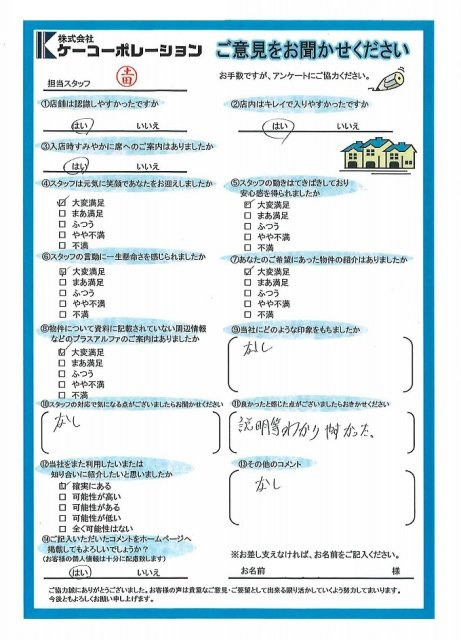 株式会社
ケーコーポレーション
ご意見をお聞かせください
担当スタッフ
お手数ですが、アンケートにご協力ください。
①店舗は認識しやすかったですか
はい いいえ
②店内はキレイで入りやすかったですか
はい いいえ
③入店時すみやかに席へのご案内はありましたか
はい いいえ
④スタッフは元気に笑顔であなたをお迎えしましたか
大変満足
まあ満足
ふつう
やや不満
不満
⑤スタッフの動きはてきぱきしており
安心感を得られましたか
大変満足
まあ満足
ふつう
やや不満
不満
⑥スタッフの言動に一生懸命さを感じられましたか
大変満足
まあ満足
ふつう
やや不満
不満
⑦あなたのご希望にあった物件の紹介はありましたか
大変満足
まあ満足
ふつう
やや不満
不満
⑧物件について資料に記載されていない周辺情報
などのプラスアルファのご案内はありましたか
大変満足
まあ満足
ふつう
やや不満
不満
⑨当社にどのような印象をもちましたか
なし
⑩スタッフの対応で気になる点がございましたらお聞かせください
なし
⑪良かったと感じた点がございましたらおきかせください
説明等わかり良かった。
⑫当社をまた利用したいまたは
知り合いに紹介したいと思いましたか
確実にある
可能性が高い
可能性がある
可能性が低い
全く可能性はない
⑬その他のコメント
なし
⑭ご記入いただいたコメントをホームページへ
掲載してもよろしいでしょうか？
（お客様の個人情報は十分に配慮致します）
はい いいえ
※お差し支えなければ、お名前をご記入ください。
お名前 様
ご協力誠にありがとうございました。お客様の声は貴重なご意見・ご要望として出来る限り活かしていくよう努力してまいります。
今後ともよろしくお願い申し上げます。